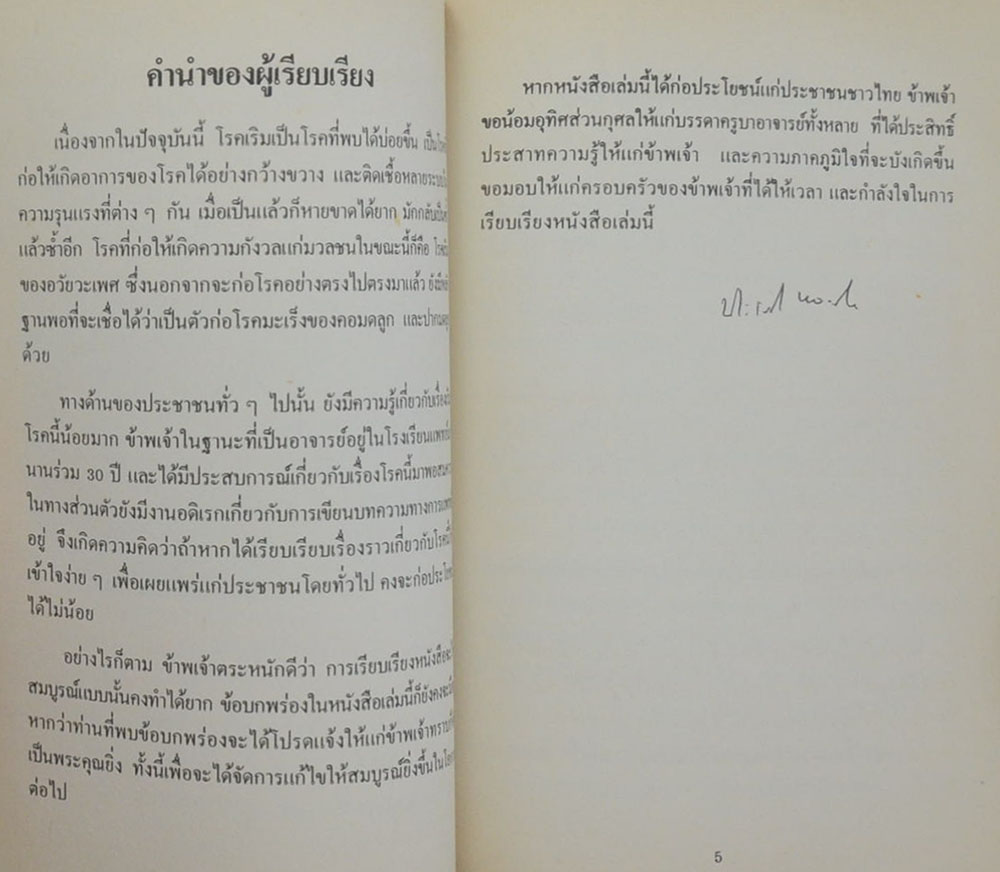 คำนำของผู้เรียบเรียง
เนื่องจากในปัจจุบันนี้ โรคเริมเป็นโรคที่พบได้บ่อยขึ้น เป็น
ก่อให้เกิดอาการของโรคได้อย่างกว้างขวาง และติดเชื้อหลาย
ความรุนแรงที่ต่าง ๆ กัน เมื่อเป็นแล้วก็หายขาดได้ยาก มักกลับ
แล้วซ้ำอีก โรคที่ก่อให้เกิดความกังวลแก่มวลชนในขณะนี้ก็คือ
ของอวัยวะเพศ ซึ่งนอกจากจะก่อโรคอย่างตรงไปตรงมาแล้ว
ฐานพอที่จะเชื่อได้ว่าเป็นตัวก่อโรคมะเร็งของคอมดลูก และ
ด้วย
ทางด้านของประชาชนทั่ว ๆ ไปนั้น ยังมีความรู้เกี่ยวกับ
โรคนี้น้อยมาก ข้าพเจ้าในฐานะที่เป็นอาจารย์อยู่ในโรงเรียน
นานร่วม 30 ปี และได้มีประสบการณ์เกี่ยวกับเรื่องโรคนี้มา
ในทางส่วนตัวยังมีงานอดิเรกเกี่ยวกับการเขียนบทความทางการ
อยู่ จึงเกิดความคิดว่าถ้าหากได้เรียบเรียบเรื่องราวเกี่ยวกับ
เข้าใจง่าย ๆ เพื่อเผยแพร่แก่ประชาชนโดยทั่วไป คงจะก่อ
ได้ไม่น้อย
อย่างไรก็ตาม ข้าพเจ้าตระหนักดีว่า การเรียบเรียงหนังสือ
สมบูรณ์แบบนั้นคงทำได้ยาก ข้อบกพร่องในหนังสือเล่มนี้ก็ยังคง
หากว่าท่านที่พบข้อบกพร่องจะได้โปรดแจ้งให้แก่ข้าพเจ้า
เป็นพระคุณยิ่ง ทั้งนี้เพื่อจะได้จัดการแก้ไขให้สมบูรณ์ยิ่งขึ้นใน
ต่อไป
หากหนังสือเล่มนี้ได้ก่อประโยชน์แก่ประชาชนชาวไทย ข้าพเจ้า
ขอน้อมอุทิศส่วนกุศลให้แก่บรรดาครูบาอาจารย์ทั้งหลาย ที่ได้ประสิทธิ์
ประสาทความรู้ให้แก่ข้าพเจ้า และความภาคภูมิใจที่จะบังเกิดขึ้น
ขอมอบให้แก่ครอบครัวของข้าพเจ้าที่ได้ให้เวลา และกำลังใจในการ
เรียบเรียงหนังสือเล่มนี้
5